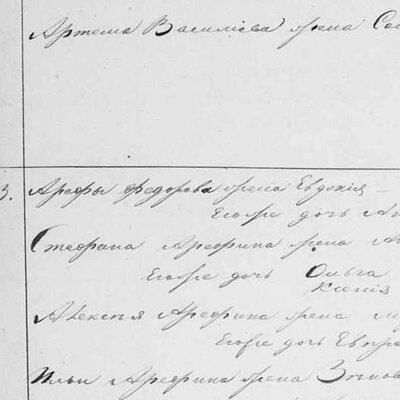 Артема Василієва жена
3. Арефы Федорова жена Евдокія
Егожe дочь
Стефана Арефина жена
Егожe дочь Ольга
Ксенія
Алексѣя Арефина жена
Егожe дочь Евпра
Ильи Арефина жена Зинов